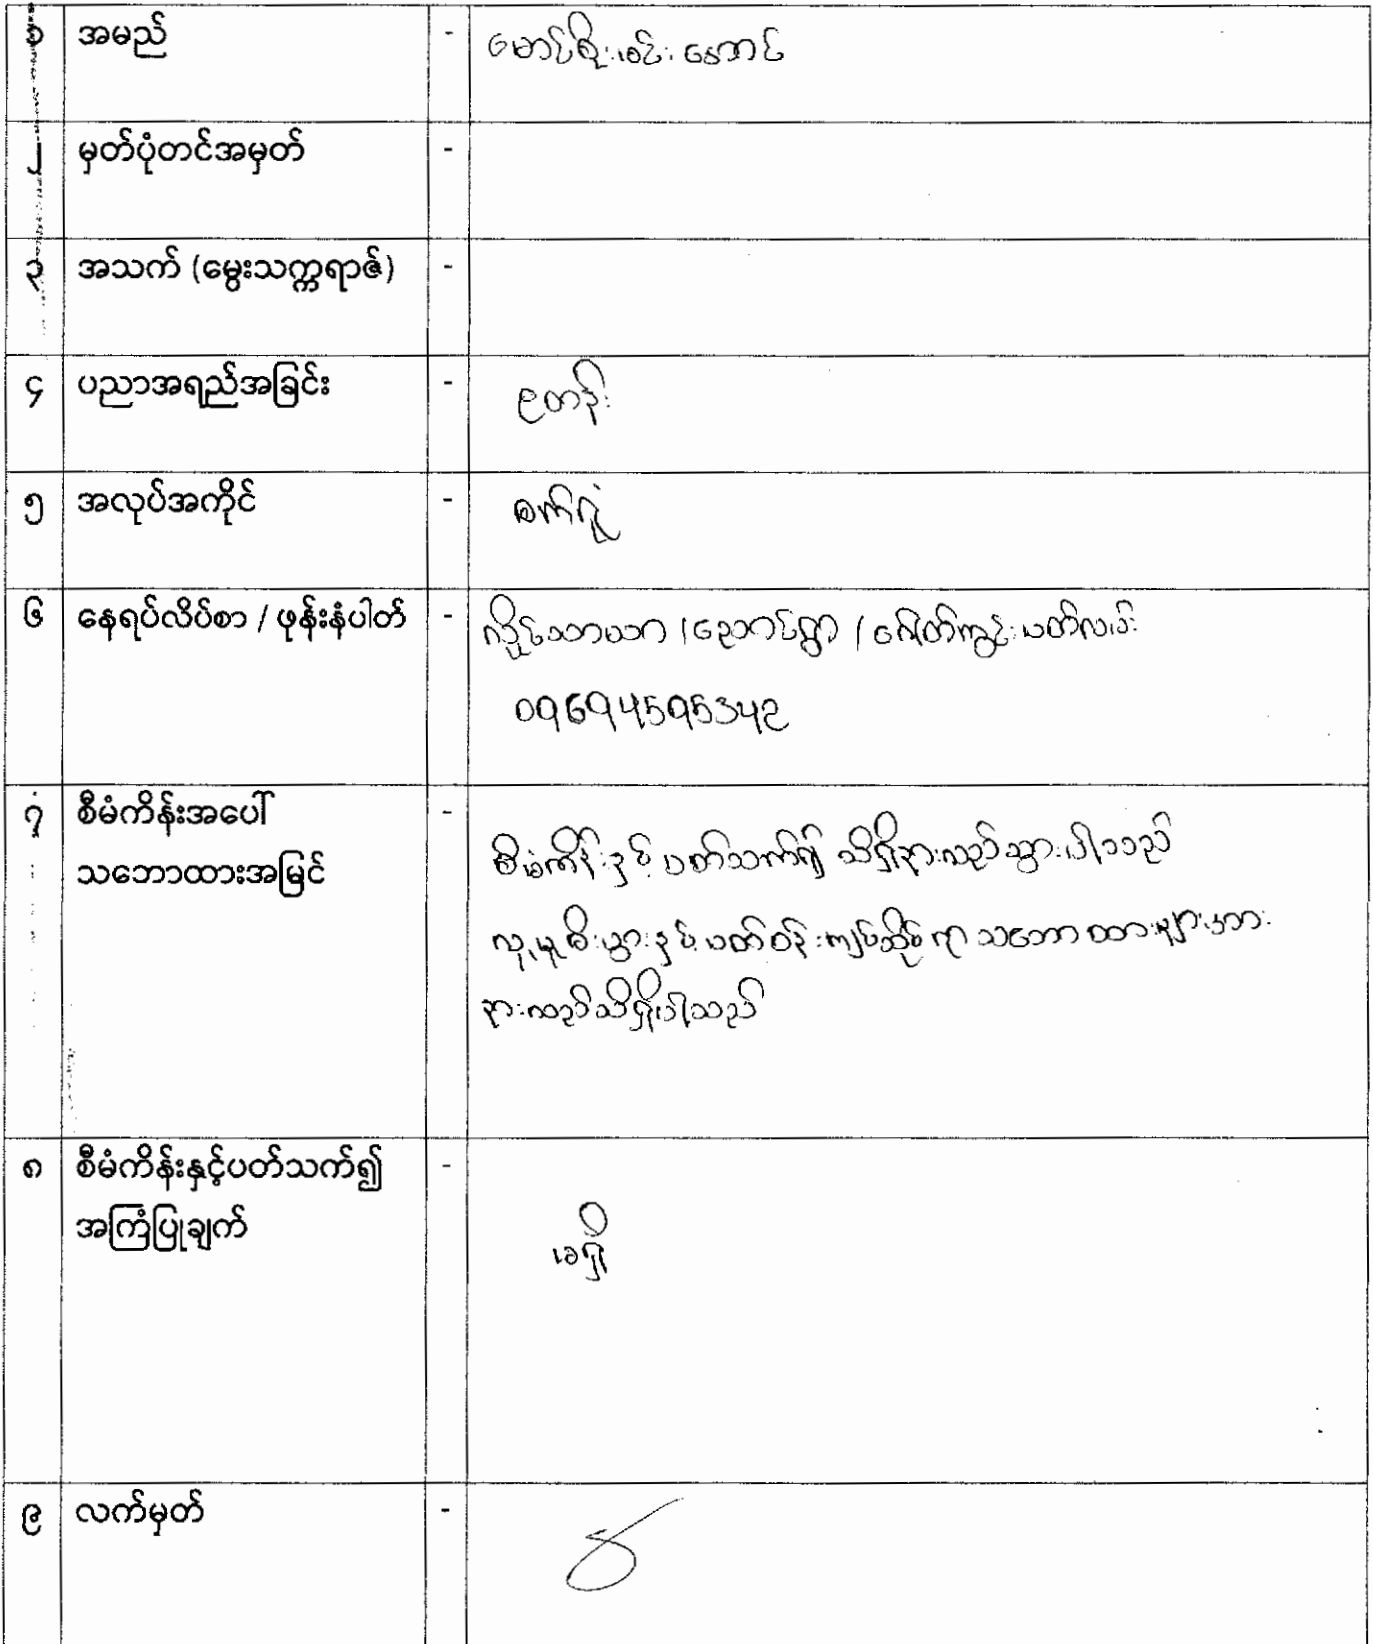 ၁ အမည် - မောင်စိုးမင်းအောင်
၂ မှတ်ပုံတင်အမှတ် -
၃ အသက် (မွေးသက္ကရာဇ်) -
၄ ပညာအရည်အခြင်း - ၉တန်း
၅ အလုပ်အကိုင် - စက်ရုံ
၆ နေရပ်လိပ်စာ / ဖုန်းနံပါတ် - လှိုင်သာယာ / ညောင်ရွာ /
09694595342
၇ စီမံကိန်းအပေါ် -
သဘောထားအမြင် စီမံကိန်းနှင့် ပတ်သက်၍ သိရှိနားလည်သွားပါသည်
လူမှုစီးပွားနှင့် ပတ်ဝန်းကျင်ဆိုင်ရာ သဘောထားများအား
နားလည်သိရှိပါသည်
၈ စီမံကိန်းနှင့်ပတ်သက်၍ -
အကြံပြုချက် မရှိ
၉ လက်မှတ် -